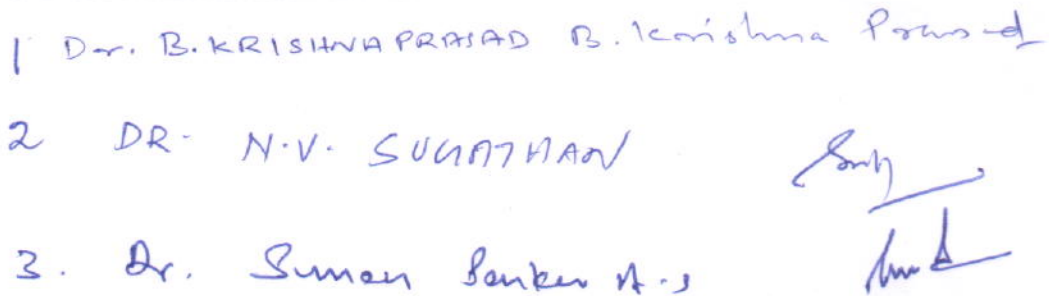 1 Dr. B. KRISHNAPRASAD B. Krishna Prasad
2 DR. N.V. SUGATHAN
3. Dr. Suman Sanker A.S